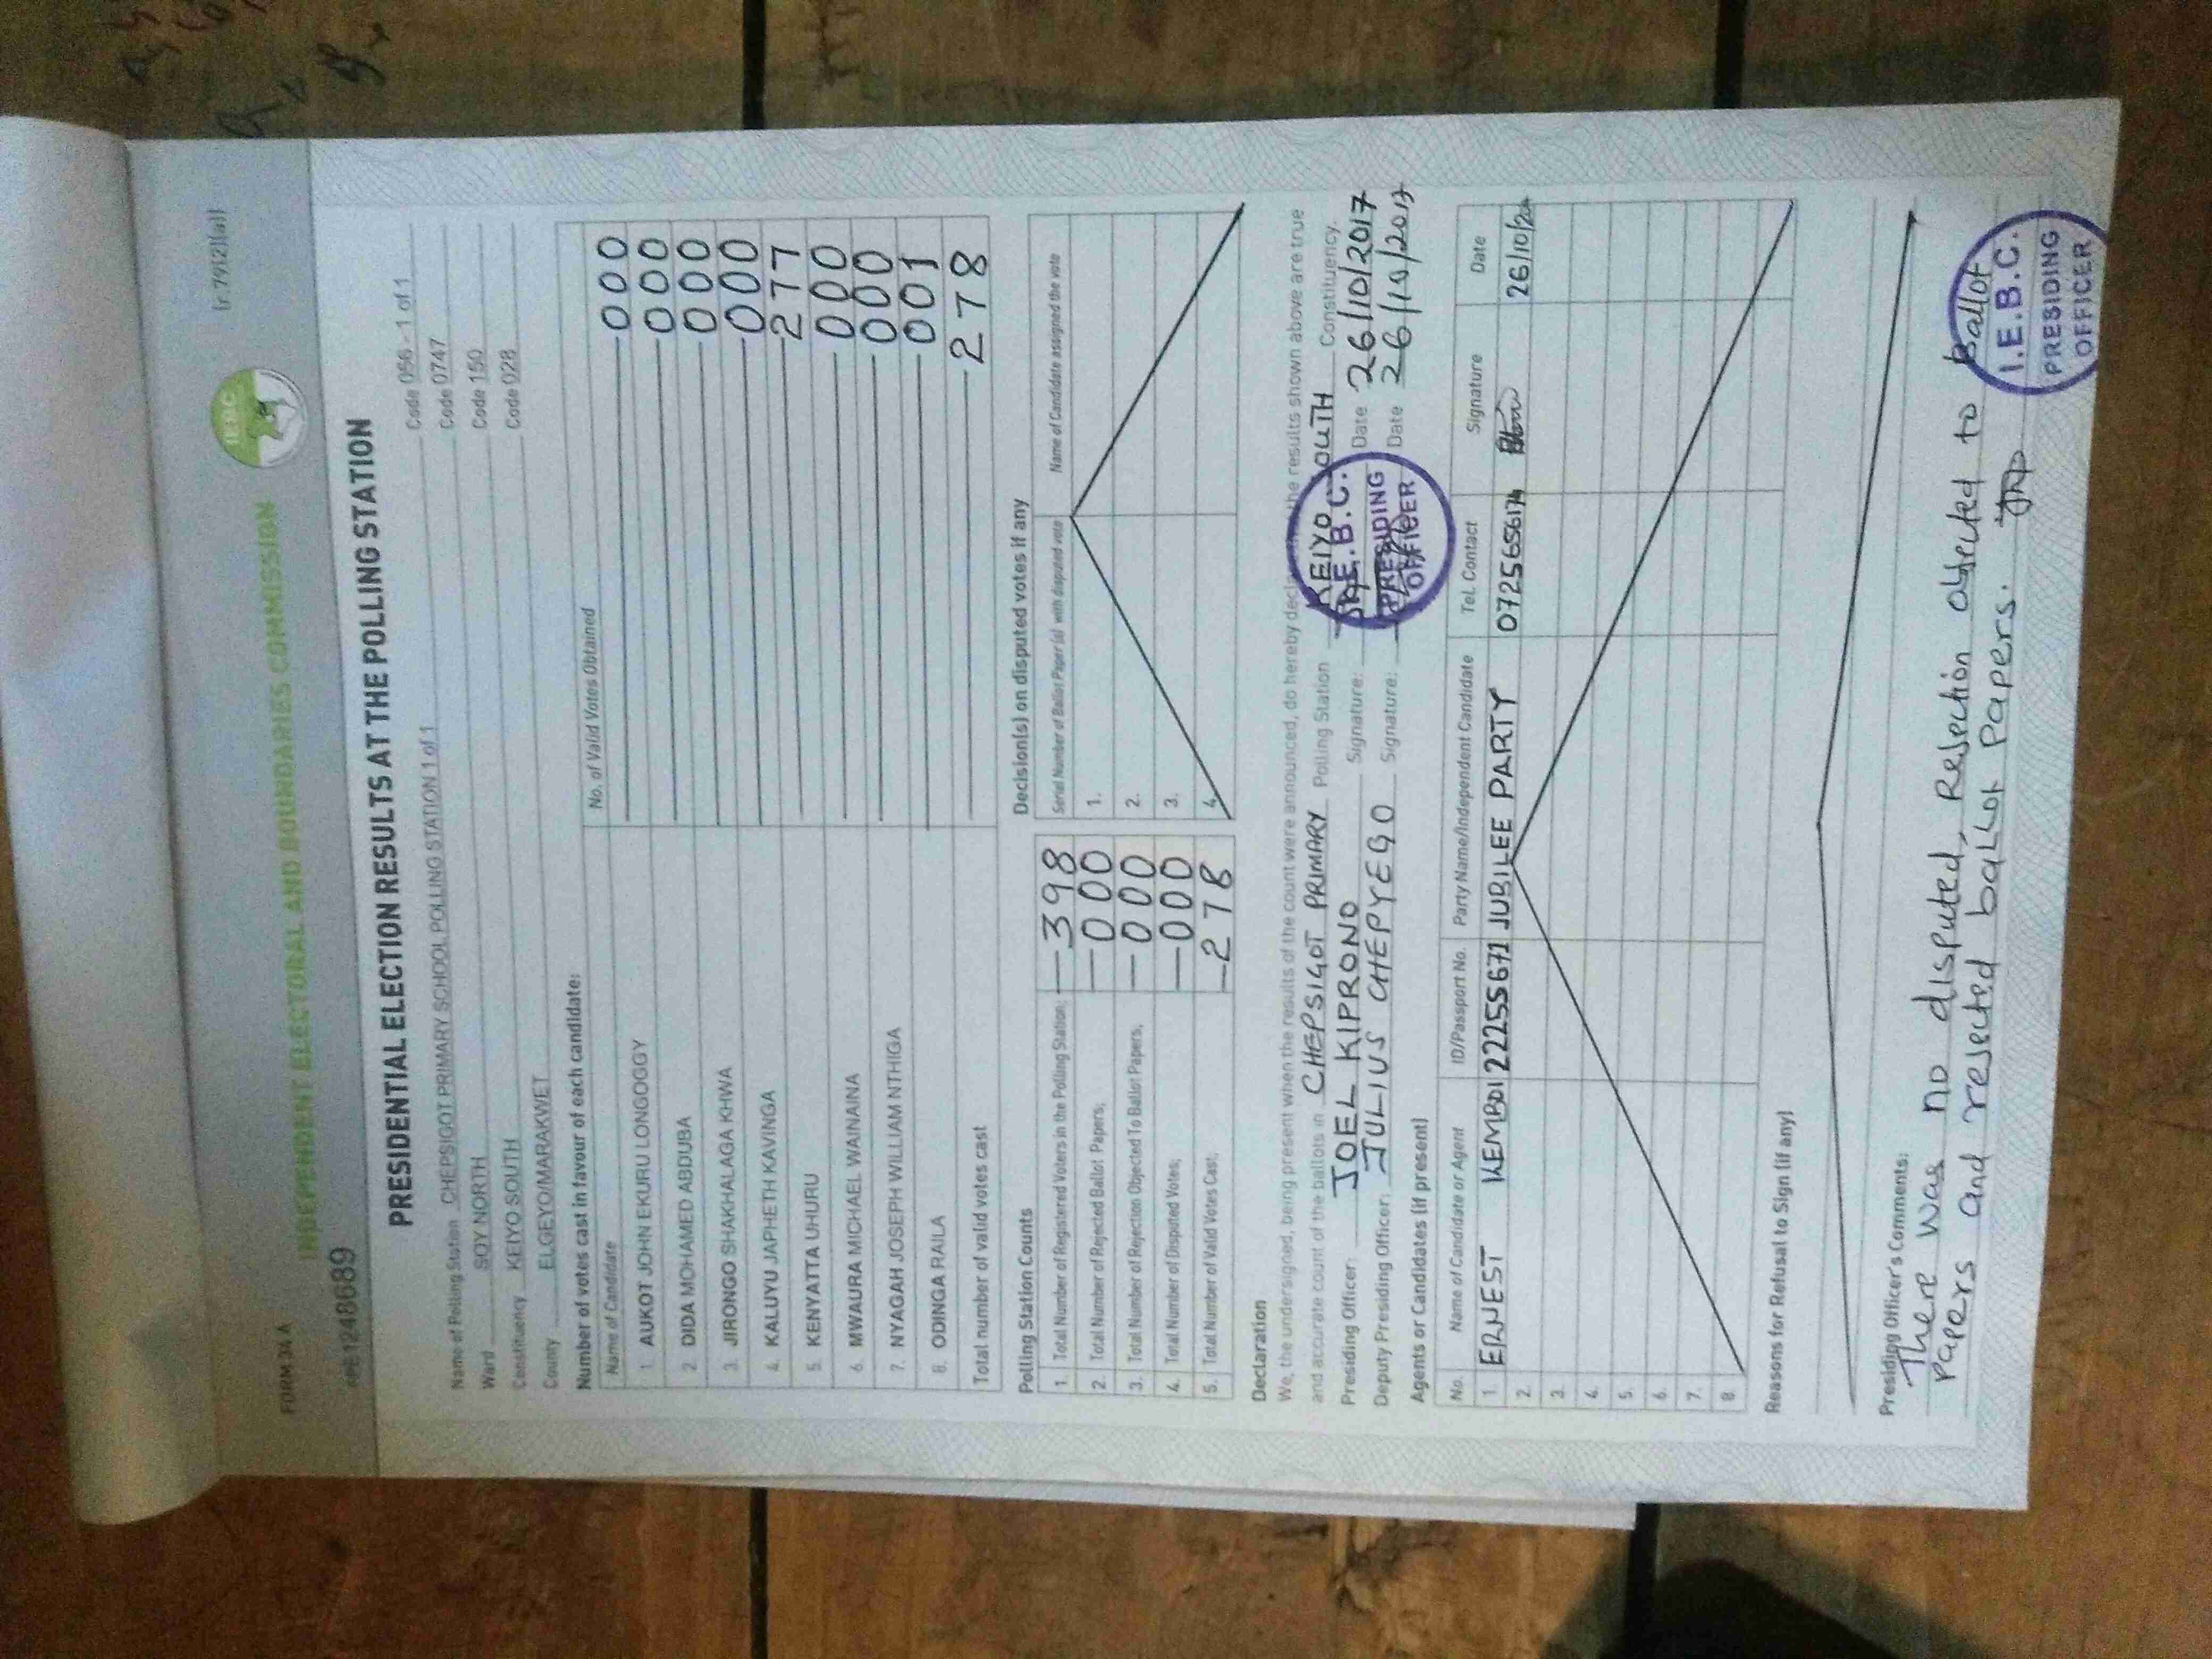 FORM 34 A
(r.79(2)(a))
IEBC
INDEPENDENT ELECTORAL AND BOUNDARIES COMMISSION
1248689
PRESIDENTIAL ELECTION RESULTS AT THE POLLING STATION
Name of Polling Station CHEPSIGOT PRIMARY SCHOOL POLLING STATION 1 of 1 Code 056 - 1 of 1
Ward SOY NORTH Code 0747
Constituency KEIYO SOUTH Code 150
County ELGEYO/MARAKWET Code 028
Number of votes cast in favour of each candidate:
Name of Candidate No. of Valid Votes Obtained
1. AUKOT JOHN EKURU LONGOGGY 000
2. DIDA MOHAMED ABDUBA 000
3. JIRONGO SHAKHALAGA KHWA 000
4. KALUYU JAPHETH KAVINGA 000
5. KENYATTA UHURU 277
6. MWAURA MICHAEL WAINAINA 000
7. NYAGAH JOSEPH WILLIAM NTHIGA 000
8. ODINGA RAILA 001
Total number of valid votes cast 278
Polling Station Counts
1. Total Number of Registered Voters in the Polling Station; 398
2. Total Number of Rejected Ballot Papers; 000
3. Total Number of Rejection Objected To Ballot Papers; 000
4. Total Number of Disputed Votes; 000
5. Total Number of Valid Votes Cast; 278
Decision(s) on disputed votes if any
Serial Number of Ballot Paper (s) with disputed vote Name of Candidate assigned the vote
1.
2.
3.
4.
Declaration
We, the undersigned, being present when the results of the count were announced, do hereby declare the results shown above are true
and accurate count of the ballots in CHEPSIGOT PRIMARY Polling Station KEIYO SOUTH Constituency.
Presiding Officer: JOEL KIPRONO Signature: Date 26/10/2017
Deputy Presiding Officer: JULIUS CHEPYEGO Signature: Date 26/10/2017
I.E.B.C.
PRESIDING
OFFICER
Agents or Candidates (if present)
No. Name of Candidate or Agent ID/Passport No. Party Name/Independent Candidate Tel. Contact Signature Date
1. ERNEST KEMBOI 22255671 JUBILEE PARTY 0725656174 26/10/20
2.
3.
4.
5.
6.
7.
8.
Reasons for Refusal to Sign (if any)
Presiding Officer's Comments:
There was no disputed, Rejection objected to Ballot
Papers and rejected ballot Papers.
I.E.B.C.
PRESIDING
OFFICER